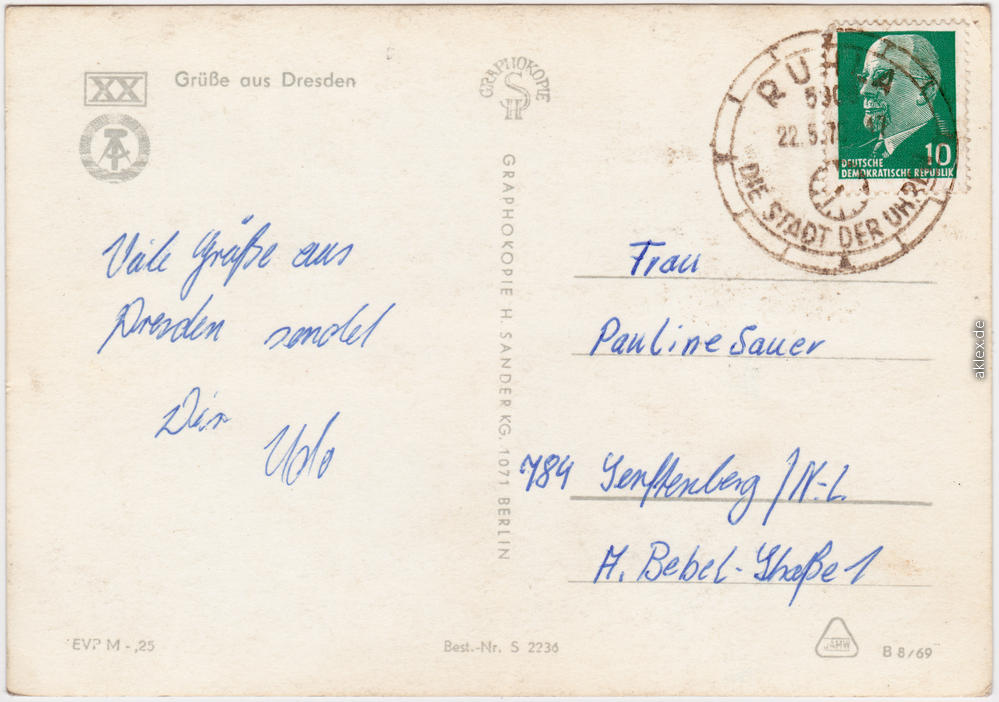 XX
Grüße aus Dresden
Viele Grüße aus
Dresden sendet
Dir
Udo
EVP M -,25
GRAPHOKOPIE
SH
GRAPHOKOPIE H. SANDER KG. 1071 BERLIN
Best.-Nr. S 2236
RUHLA
22.5.
DIE STADT DER UHREN
10
DEUTSCHE
DEMOKRATISCHE REPUBLIK
Frau
Pauline Sauer
784 Senftenberg / N.-L.
A. Bebel-Straße 1
JAHW
B 8/69
aklex.de